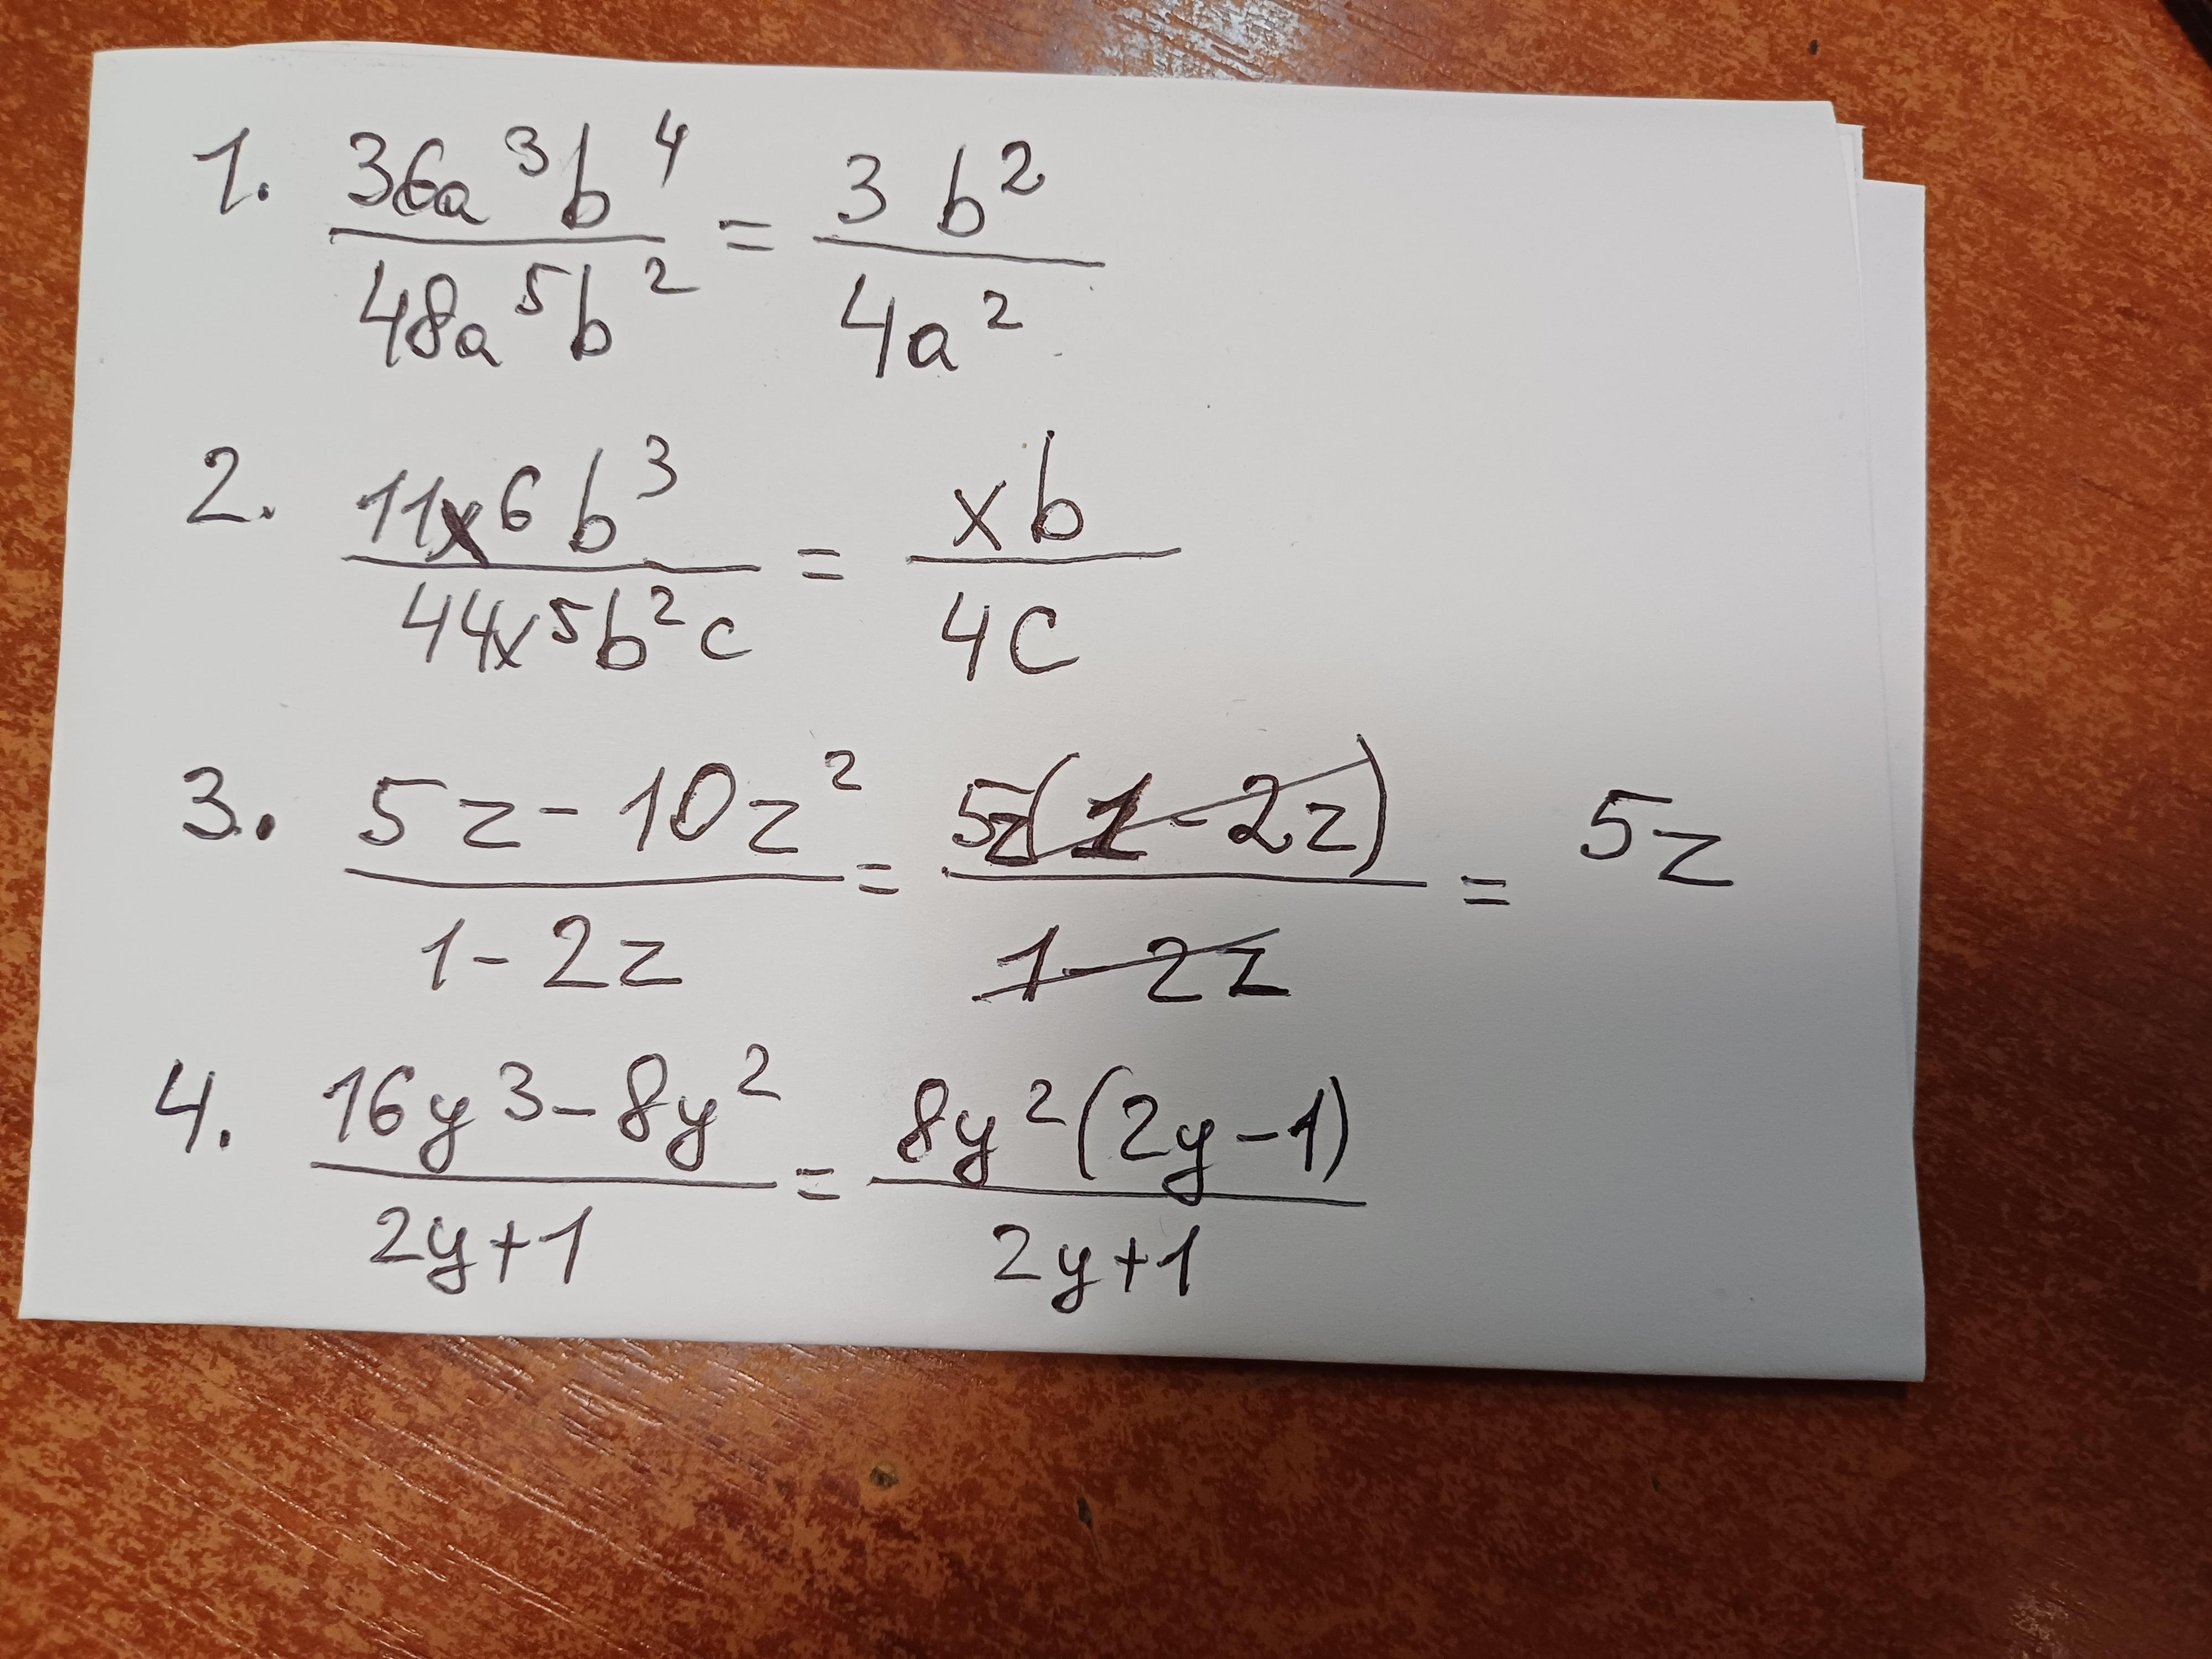 1. 36a³b⁴/48a⁵b² = 3b²/4a²
2. 11x⁶b³/44x⁵b²c = xb/4c
3. 5z-10z²/1-2z = 5z(1-2z)/1-2z = 5z
4. 16y³-8y²/2y+1 = 8y²(2y-1)/2y+1